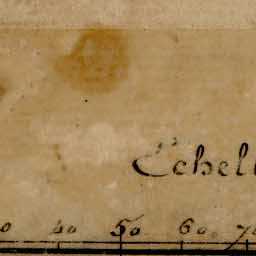 Echel
40 50 60 70